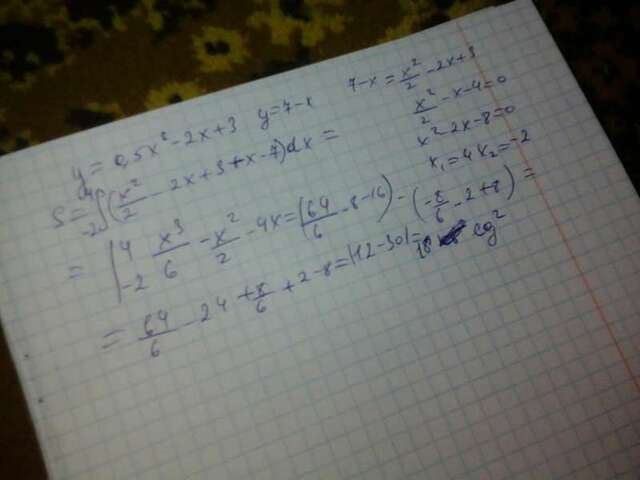 y = 0,5x² - 2x + 3 y = 7 - x
7 - x = x²/2 - 2x + 3
x²/2 - x - 4 = 0
x² - 2x - 8 = 0
x₁ = 4 x₂ = -2
S = ₋₂⁴∫(x²/2 - 2x + 3 + x - 7)dx =
= |₋₂⁴ x³/6 - x²/2 - 4x = (64/6 - 8 - 16) - (-8/6 - 2 + 8) =
= 64/6 - 24 + 8/6 + 2 - 8 = |12 - 30| = 18 ед²